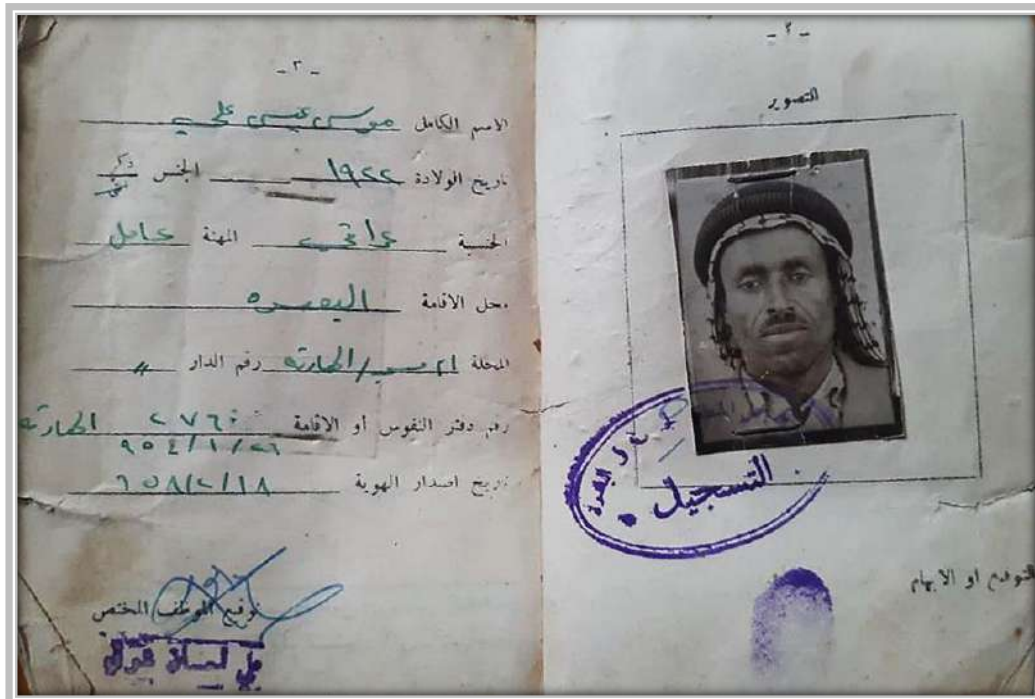 - ٢ -
التصوير
التسجيل
التوقيع او الابهام
- ٣ -
الاسم الكامل موسى عيسى علي
تاريخ الولادة ١٩٢٢ الجنس ذكر
الجنسية عراقي المهنة عامل
محل الاقامة البصرة
المحلة / الحارثه رقم الدار "
رقم دفتر النفوس أو الاقامة ٢٧٦٠ الحارثه
٩٥٤/١/٢٦
تاريخ اصدار الهوية ٩٥٨/٢/١٨
توقيع الموظف المختص